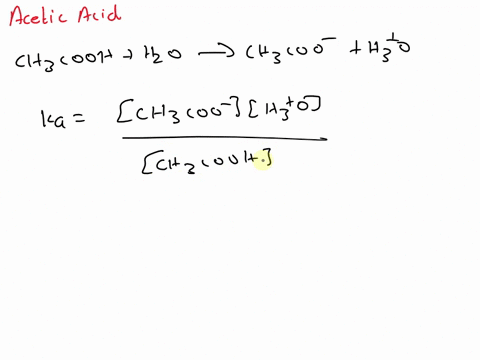 Acetic Acid
CH₃COOH + H₂O ⟶ CH₃COO⁻ + H₃⁺O
ka = [CH₃COO⁻][H₃⁺O]
[CH₂COOH]